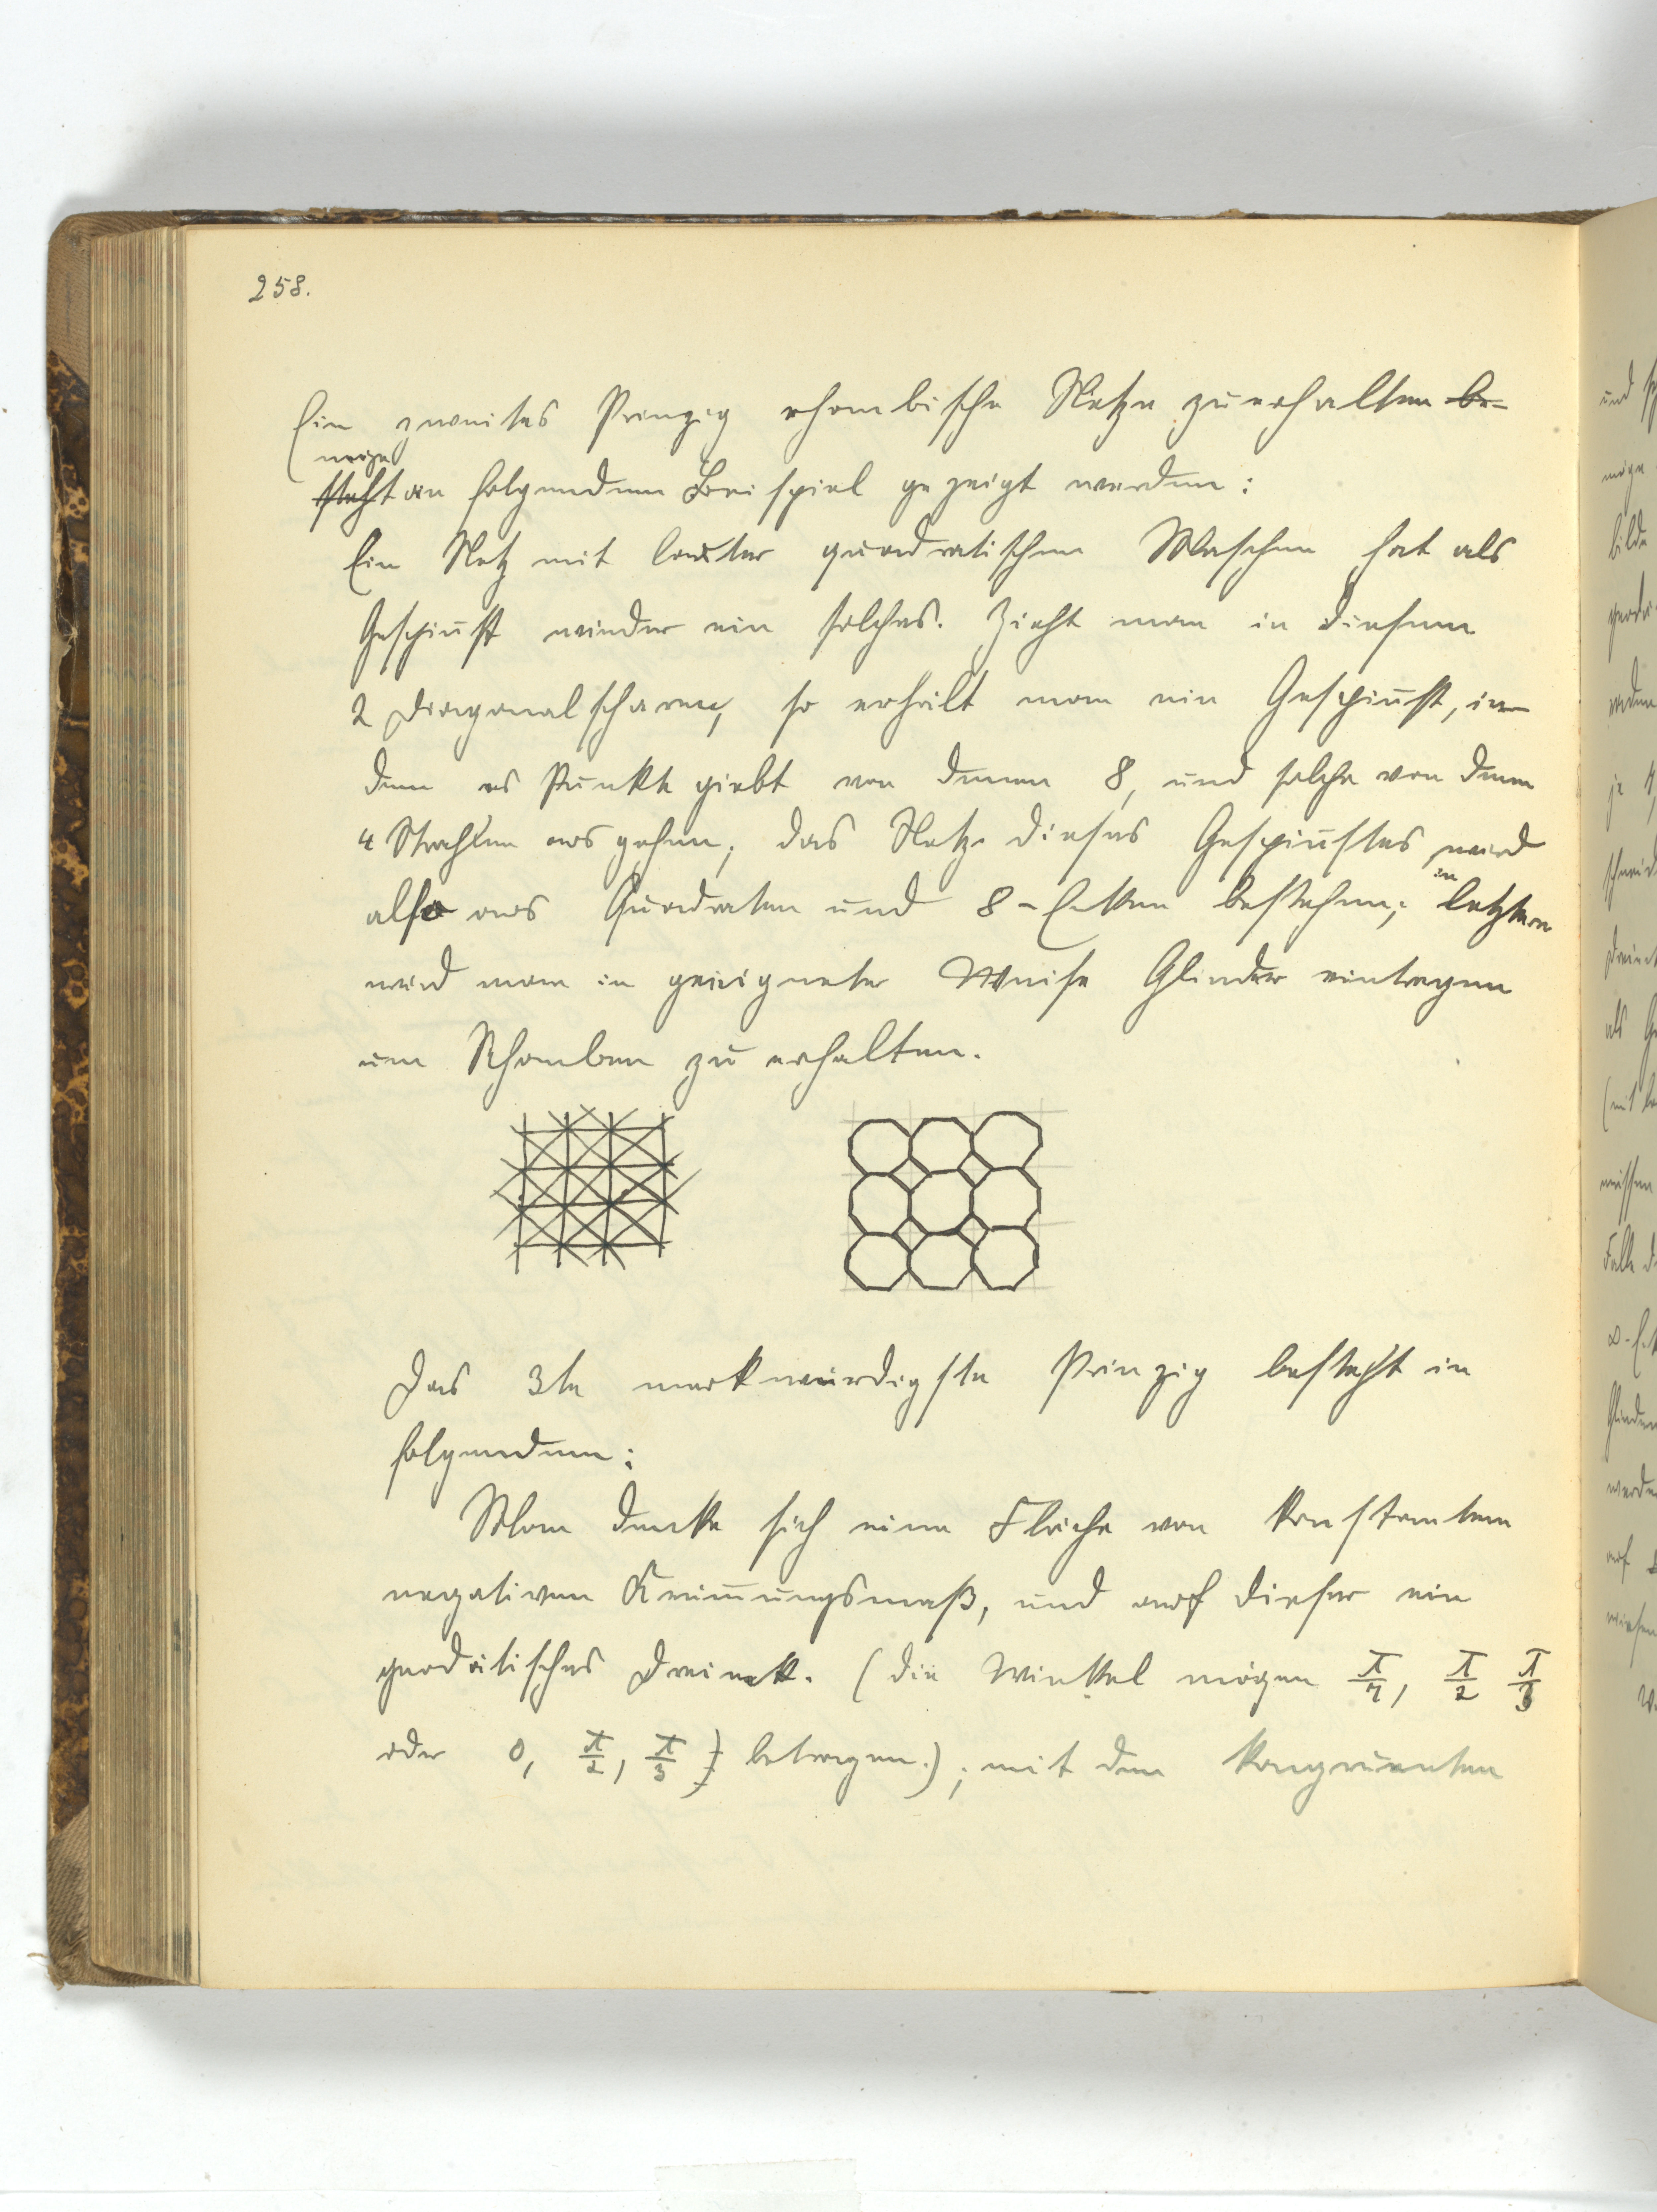 258.
Ein zweites Prinzip rhombische Netze zu erhalten be-
möge
steht an folgendem Beispiel gezeigt werden:
Ein Netz mit lauter quadratischen Maschen hat als
Gespinst wieder ein solches. Zieht man in diesem
2 Diagonalscharen, so erhält man ein Gespinst, in
dem es Punkte giebt von denen 8, und solche von denen
4 Strahlen ausgehen; das Netz dieses Gespinstes wird
in
also aus Quadraten und 8-Ecken bestehen; letztere
wird man in geeigneter Weise Glieder eintragen
um Rhomben zu erhalten.
Das 3te merkwürdigste Prinzip besteht in
folgendem:
Man denke sich eine Fläche von konstantem
negativem Krümmungsmaß, und auf dieser ein
geodätisches Dreieck. (die Winkel mögen π/7, π/2 π/3
oder 0, π/2, π/3) betragen.); mit den kongruenten